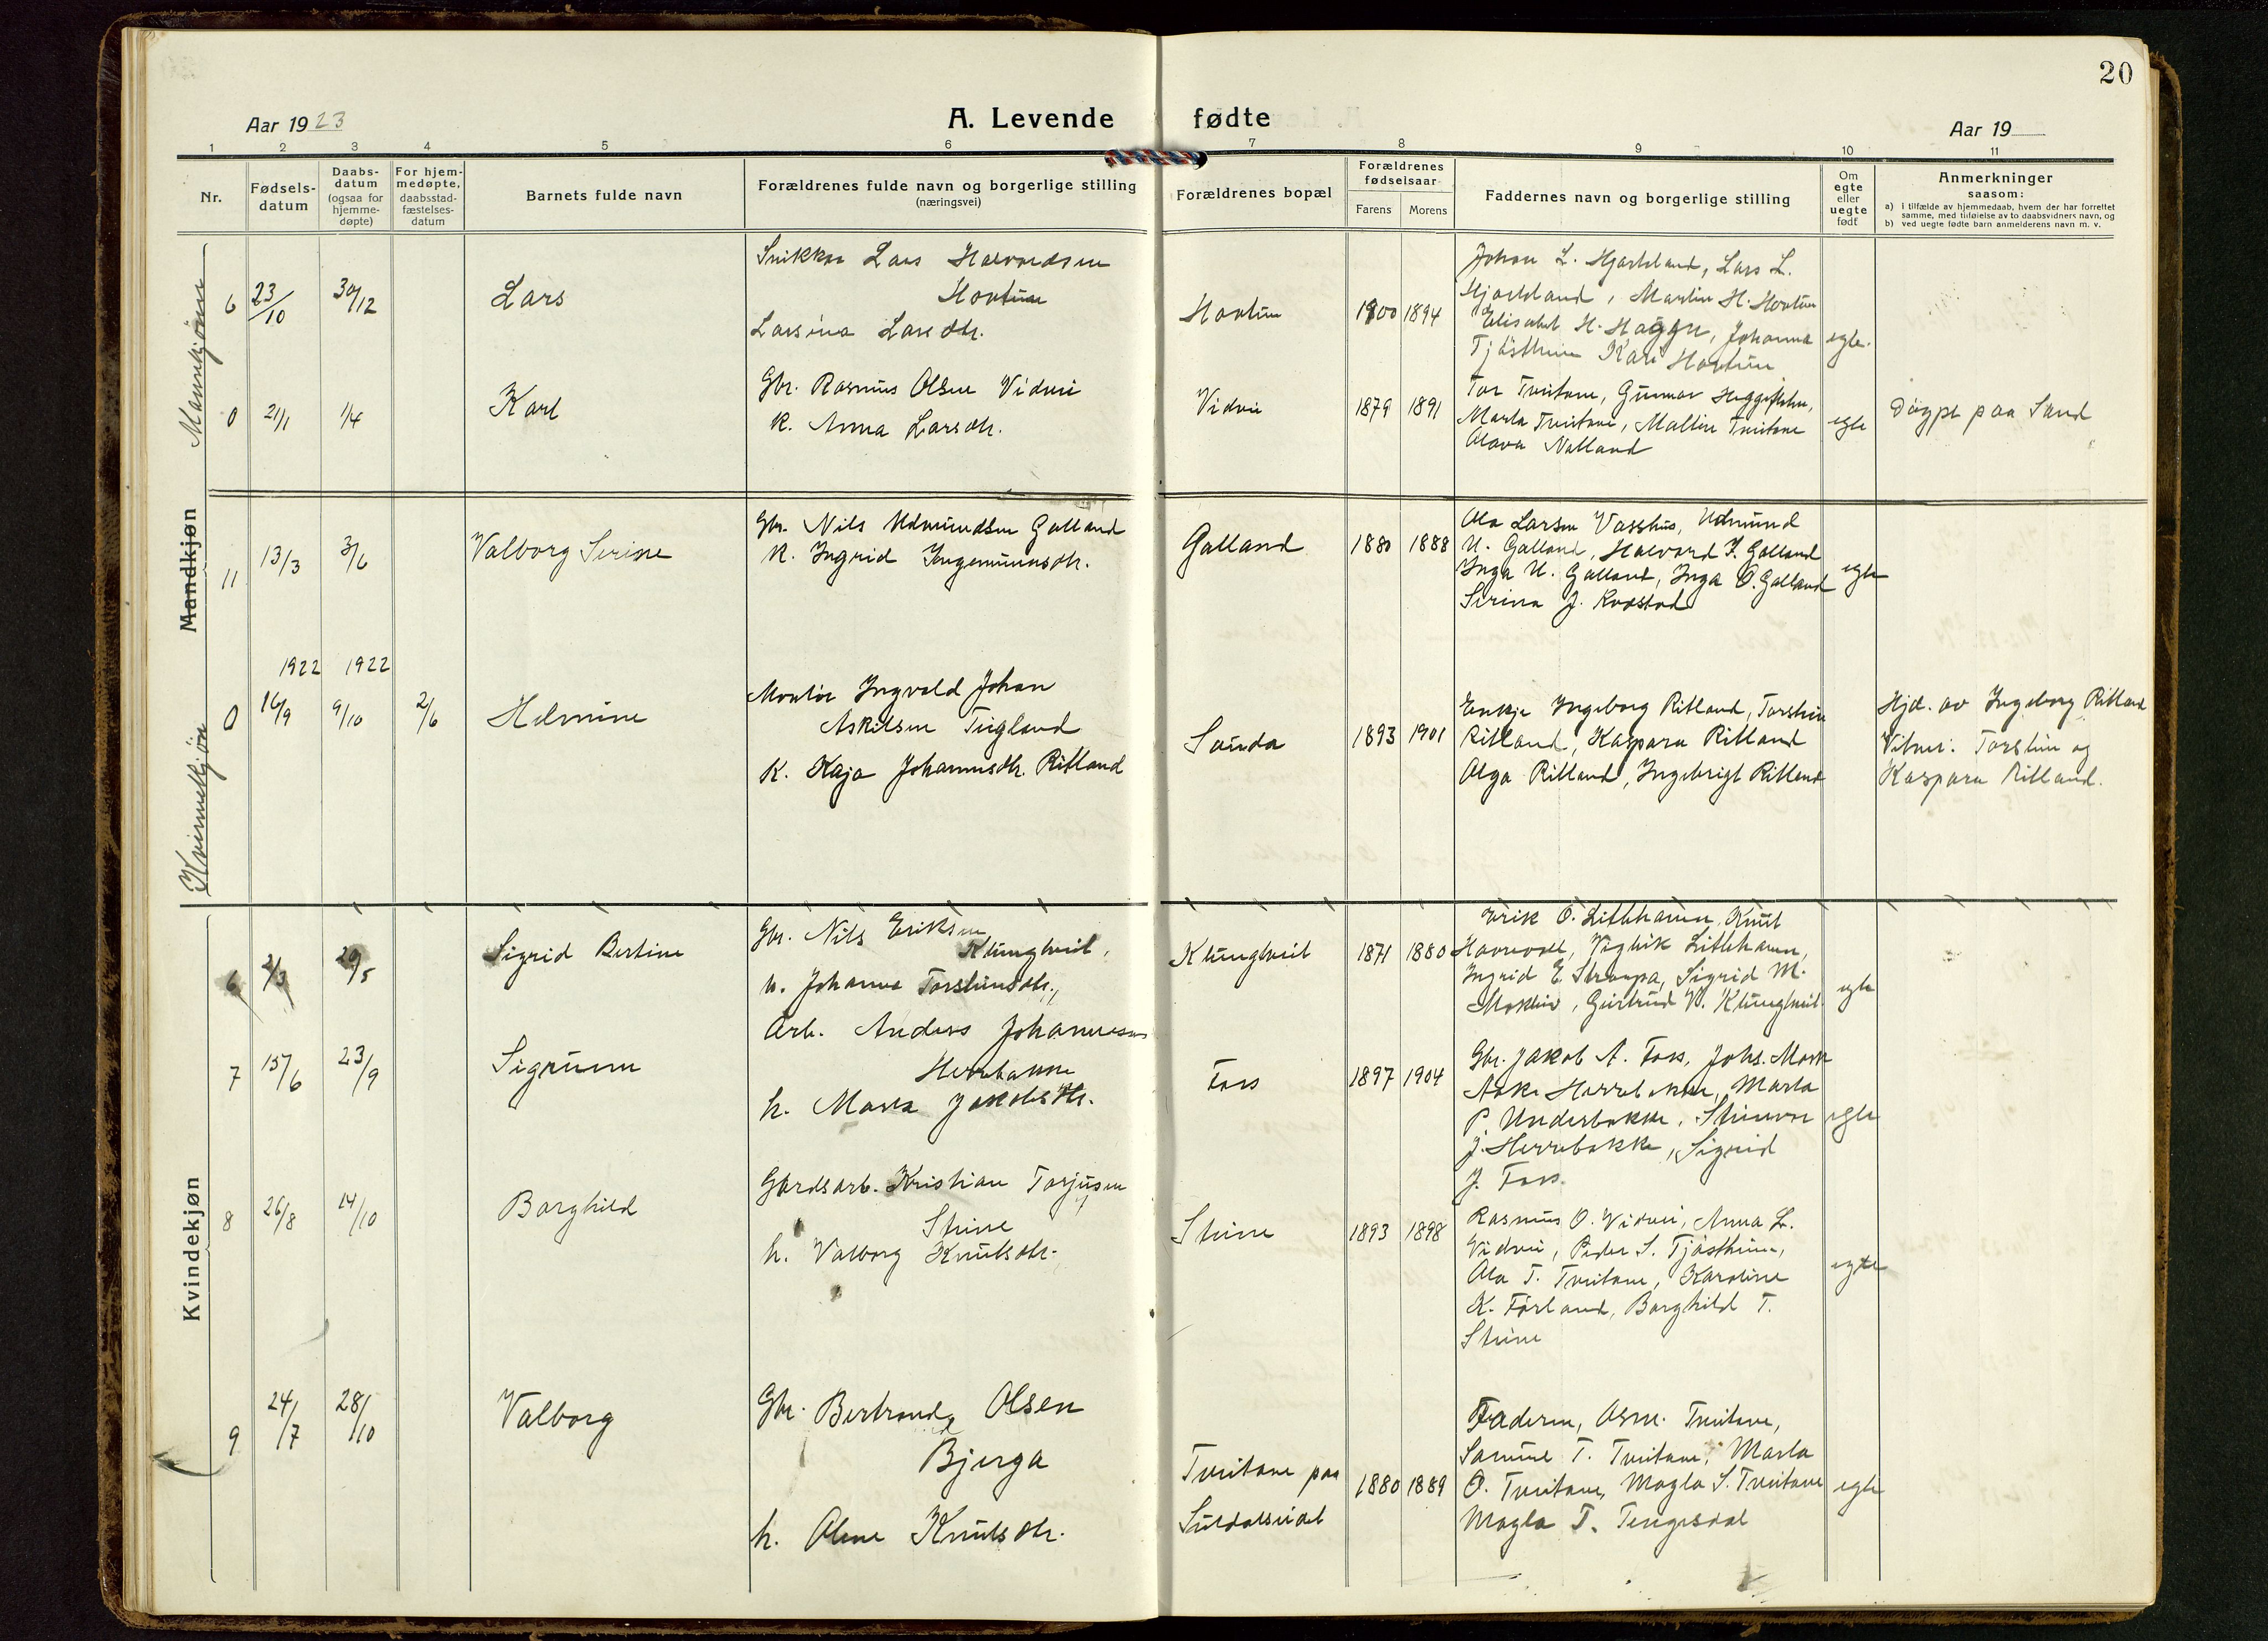 20
Aar 1923
A. Levende fødte
Aar 19
1 2 3 4 5 6 7 8 9 10 11
Nr.
Fødsels-
datum
Daabs-
datum
(ogsaa for
hjemme-
døpte)
For hjem-
medøpte,
daabsstad-
fæstelses-
datum
Barnets fulde navn
Forældrenes fulde navn og borgerlige stilling
(næringsvei)
Forældrenes bopæl
Forældrenes
fødselsaar
Farens Morens
Faddernes navn og borgerlige stilling
Om
egte
eller
uegte
født
Anmerkninger
saasom:
a) i tilfælde av hjemmedaab, hvem der har forrettet
samme, med tilføielse av to daabsvidners navn, og
b) ved uegte fødte barn anmelderens navn m. v.
Mannkjønn
6 23/10 30/12
Lars
Snikker Lars Halvordsen
Hovtun
Larsina Larsdtr.
Hovtun
1900 1894
Johan L. Hjorteland, Lars L.
Hjorteland, Martin H. Hovtun
Elisabet H. Haggen, Johanna
Tjøstheim Kari Hovtun
egte.
0 21/1 1/4
Karl
Gbr. Rasmus Olsen Vidvei
K. Anna Larsdtr.
Vidvei
1879 1891
Tor Tveitane, Gunnar
Marta Tveitane, Mallin Tveitane
Olava Natland
egte
Døypt paa Sand
Mandkjøn
11 13/3 3/6
Valborg Serine
Gbr. Nils Udmundsen Galland
K. Ingrid Ingemunnsdtr.
Galland
1880 1888
Ola Larsen Vasshus, Udmund
U. Galland, Halvard I. Galland
Inga U. Galland, Inga O. Galland
Serina J. Kvæstad
egte
Kvinnekjøn
1922 1922
0 16/9 9/10 2/6
Helmine
Montør Ingvald Johan
Askilsen Tegland
K. Kaja Johannesdtr. Ritland
Sauda
1893 1901
Enkje Ingeborg Ritland, Torstein
Ritland, Kaspara Ritland
Olga Ritland, Ingebrigt Ritland
Hjd. av Ingeborg Ritland
Vitner: Torstein og
Kaspara Ritland.
Kvindekjøn
6 2/3 20/5
Sigrid Bertine
Gbr. Nils Eriksen
Klungtveit,
h. Johanna Torsteinsdtr.,
Klungtveit
1871 1880
Erik O. Litlehamn, Knut
Havrevoll, Vigleik Litlehamn,
Ingrid E. Straapa, Sigrid M.
Mokleiv, Gjertrud V. Klungtveit
egte
7 15/6 23/9
Sigrunn
Arb. Anders Johannesen
Herrebakke
h. Marta Jakobsdtr.
Foss
1897 1904
Gbr. Jakob A. Foss, Johs. Mork
Aske Herrebakke, Marta
P. Underbakke, Steinvor
J. Herrebakke, Sigrid
J. Foss.
egte
8 26/8 14/10
Borghild
Gårdsarb. Kristian Torjusen
Steine
h. Valborg Knutsdtr.
Steine
1893 1898
Rasmus O. Vidvei, Anna L.
Vidvei, Peder S. Tjøstheim,
Ola T. Tveitane, Karoline
K. Førland, Borghild T.
Steine
egte
9 24/7 28/10
Valborg
Gbr. Bertrand Olsen
Bjerga
h. Olene Knutsdtr.
Tveitane paa
Suldalseidet
1880 1889
Faderen, Osm. Tveitane,
Samuel T. Tveitane, Marta
O. Tveitane, Magla S. Tveitane
Magla T. Tengesdal
egte